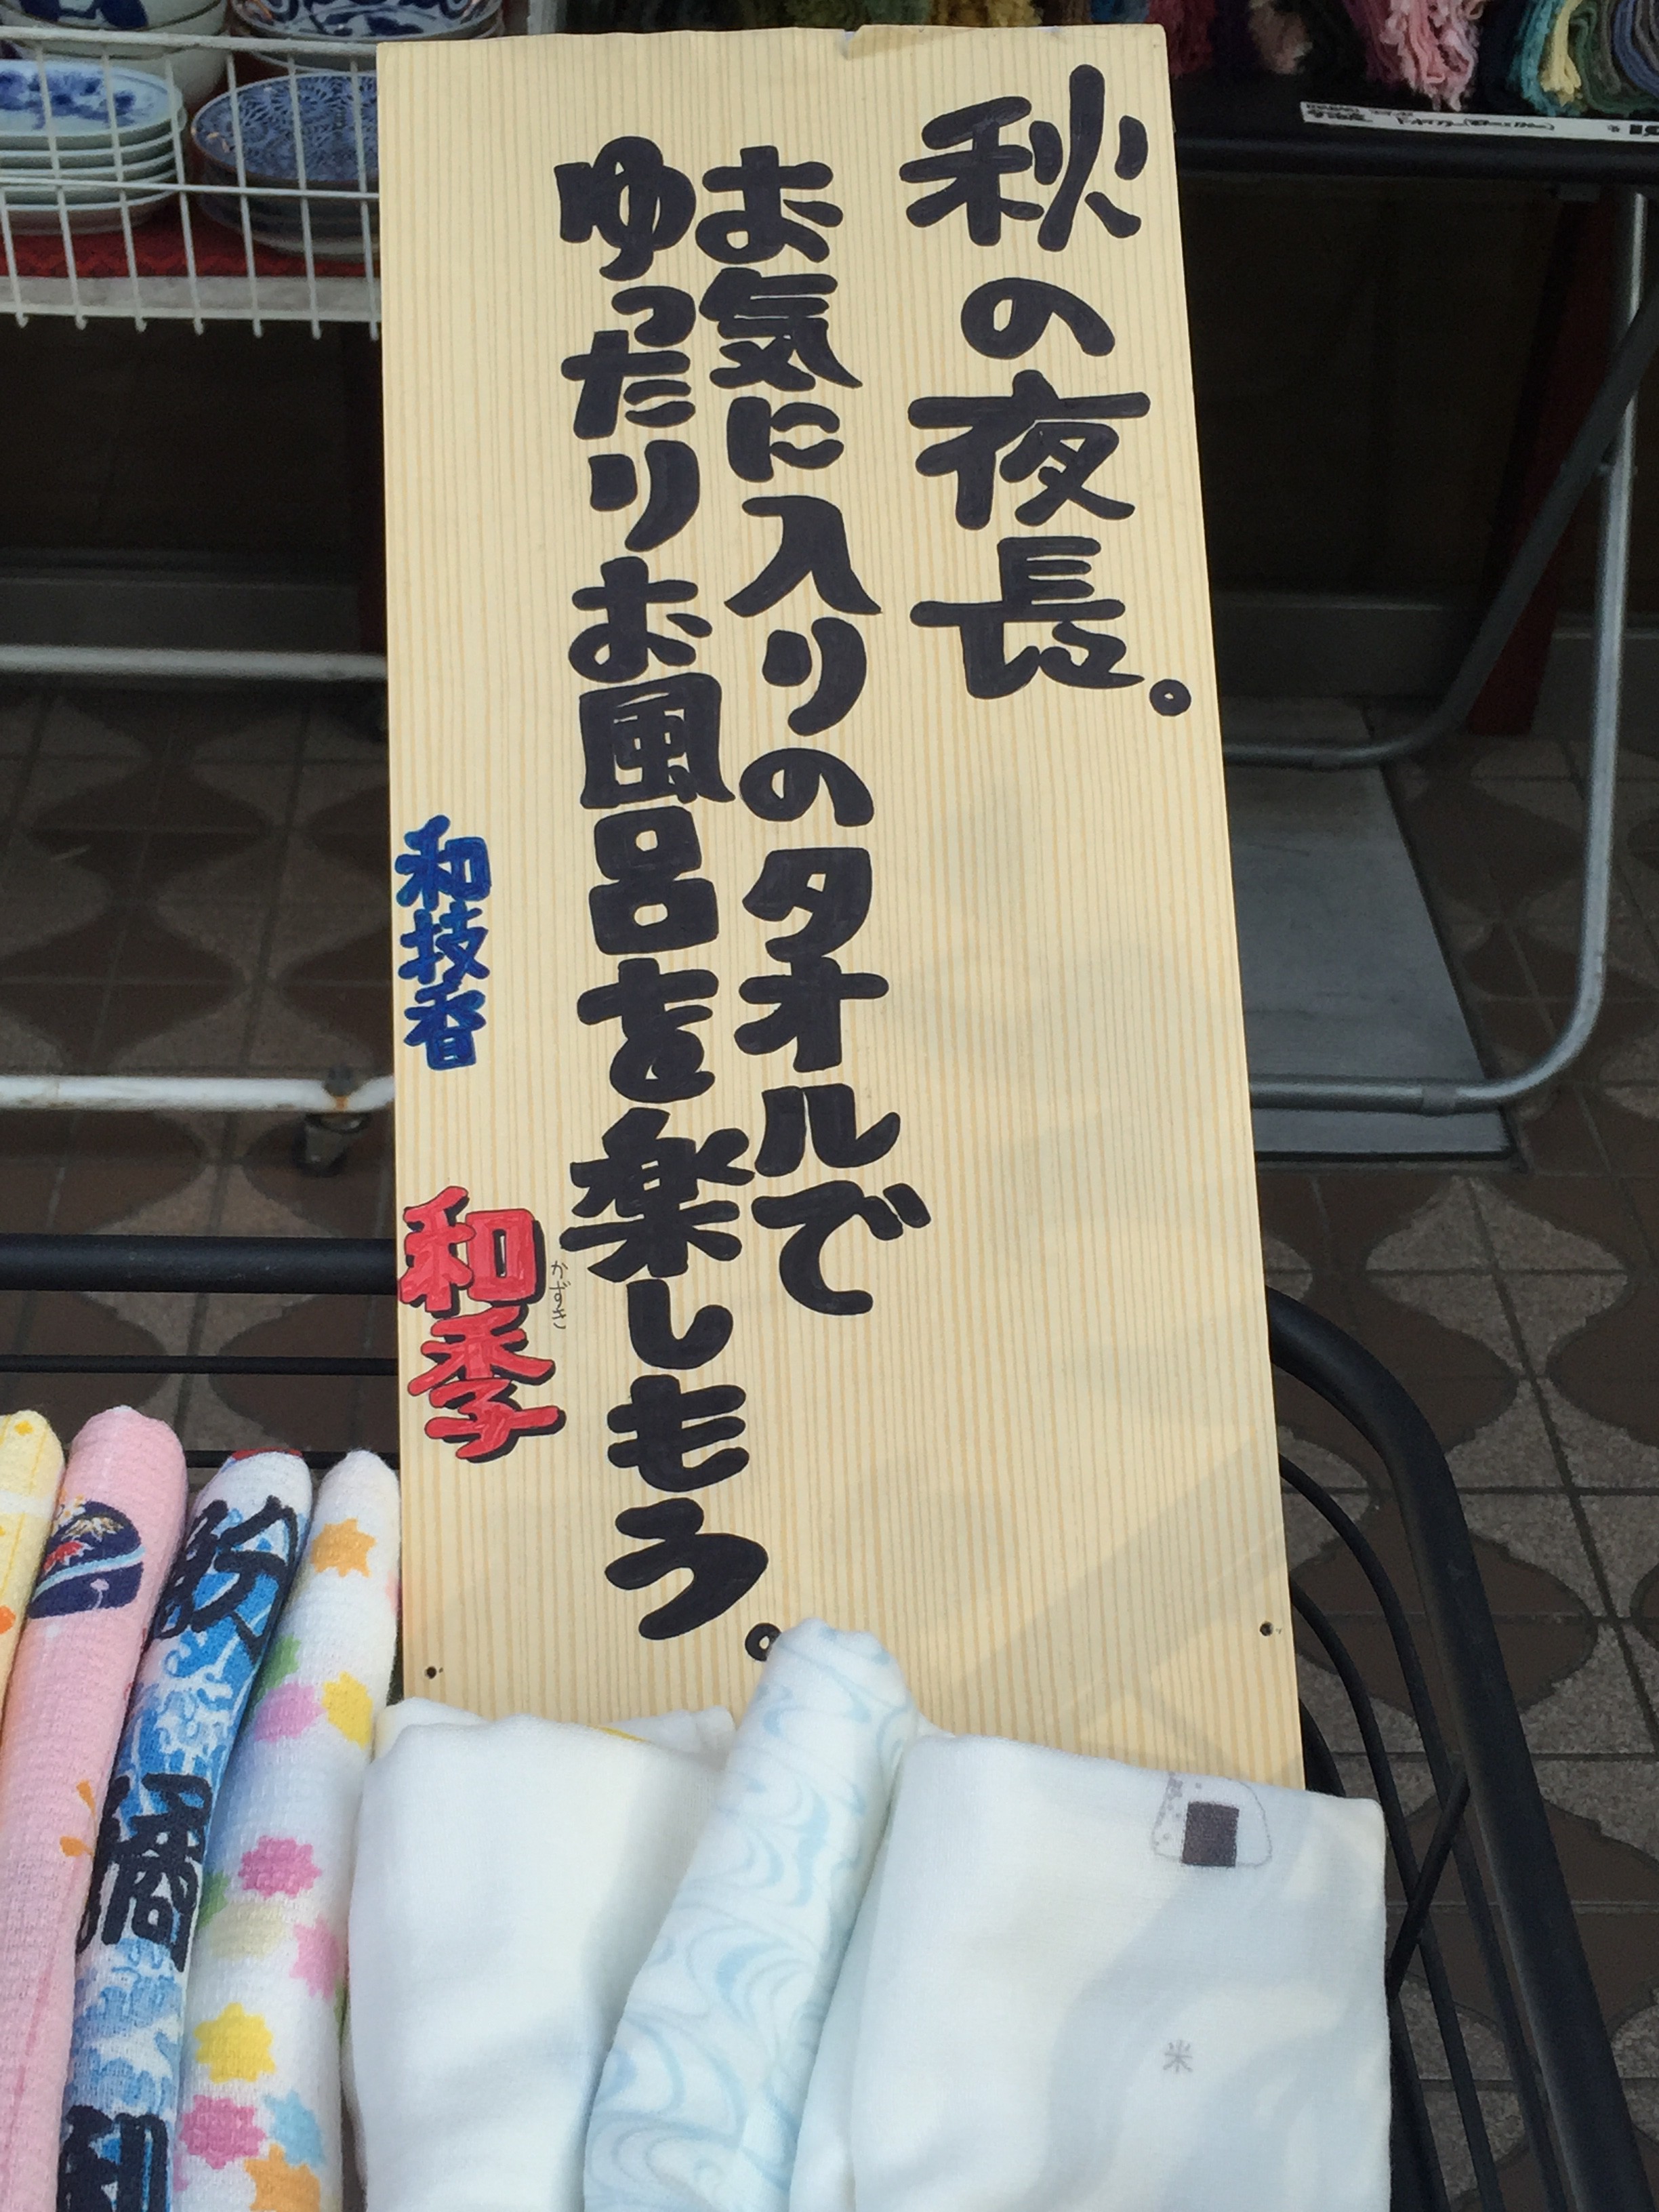 秋の夜長。
お気に入りのタオルで
ゆったりお風呂を楽しもう。
和季
かずき
和技香
米